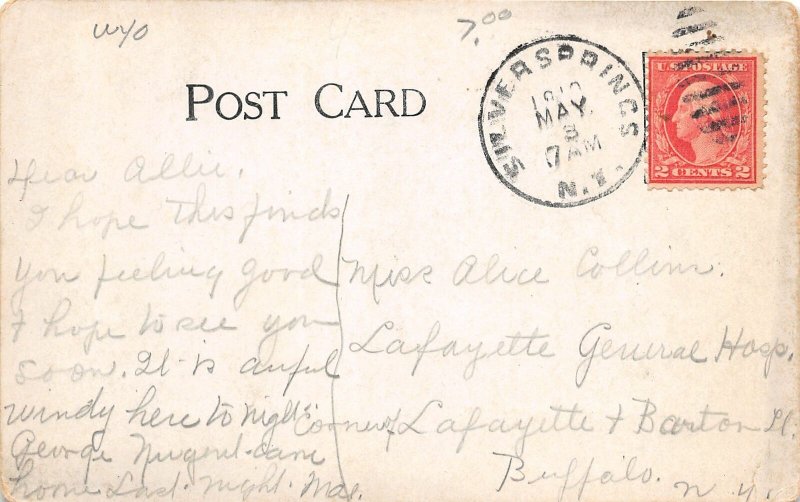 WYO
7.00
POST CARD
SILVER SPRINGS
MAY
3
7 AM
N.Y.
U.S. POSTAGE
2 CENTS 2
Dear Allie,
I hope this finds
you feeling good
& hope to see you
soon. It is awful
windy here to night
George Nugent came
home Last Night. Mae.
Miss Alice Collins.
Lafayette General Hosp.
Corner of Lafayette & Barton St.
Buffalo. N.Y.